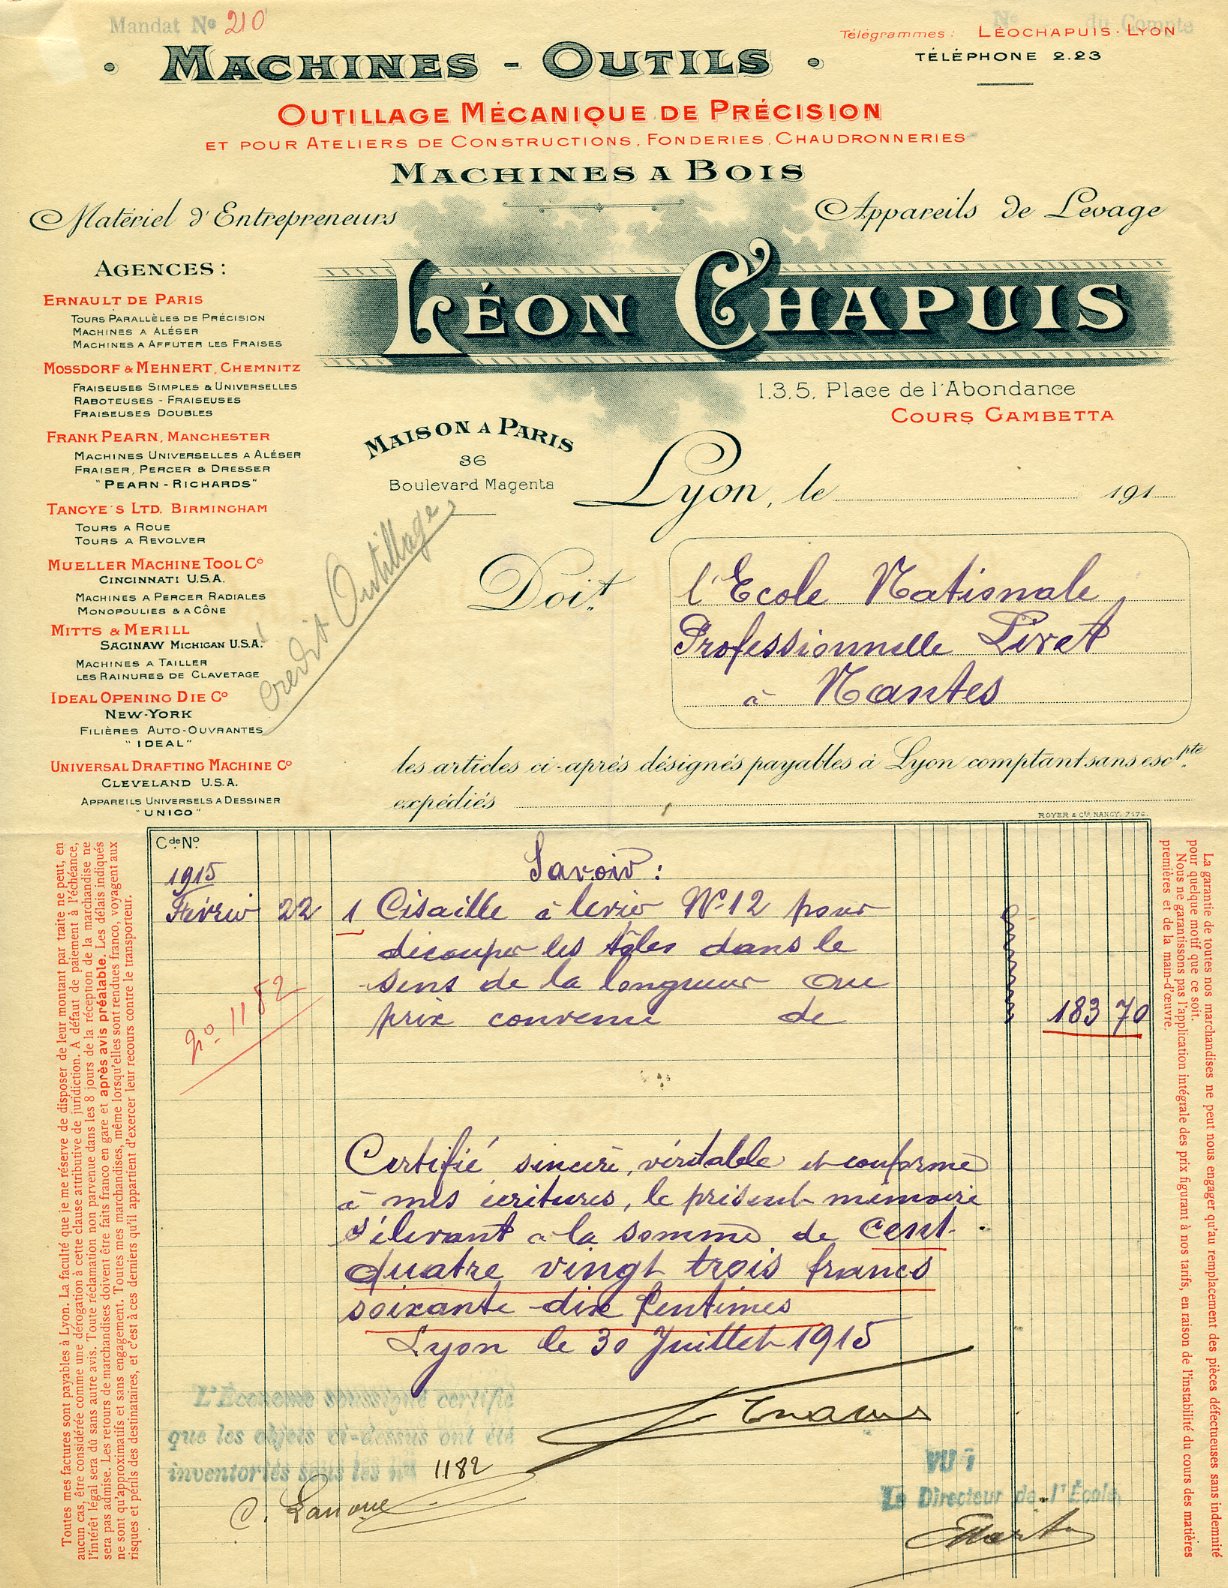 Mandat Nº 210
Nº du Compte
Télégrammes: LÉOCHAPUIS-LYON
TÉLÉPHONE 2.23
MACHINES - OUTILS
OUTILLAGE MÉCANIQUE DE PRÉCISION
ET POUR ATELIERS DE CONSTRUCTIONS, FONDERIES, CHAUDRONNERIES
MACHINES A BOIS
Matériel d'Entrepreneurs
Appareils de Levage
LÉON CHAPUIS
1.3.5, Place de l'Abondance
COURS GAMBETTA
MAISON A PARIS
36
Boulevard Magenta
AGENCES:
ERNAULT DE PARIS
TOURS PARALLÈLES DE PRÉCISION
MACHINES A ALÉSER
MACHINES A AFFUTER LES FRAISES
MOSSDORF & MEHNERT, CHEMNITZ
FRAISEUSES SIMPLES & UNIVERSELLES
RABOTEUSES - FRAISEUSES
FRAISEUSES DOUBLES
FRANK PEARN, MANCHESTER
MACHINES UNIVERSELLES A ALÉSER
FRAISER, PERCER & DRESSER
"PEARN-RICHARDS"
TANGYE'S LTD. BIRMINGHAM
TOURS A ROUE
TOURS A REVOLVER
MUELLER MACHINE TOOL Cº
CINCINNATI U.S.A.
MACHINES A PERCER RADIALES
MONOPOULIES & A CÔNE
MITTS & MERILL
SAGINAW MICHIGAN U.S.A.
MACHINES A TAILLER
LES RAINURES DE CLAVETAGE
IDEAL OPENING DIE Cº
NEW-YORK
FILIÈRES AUTO-OUVRANTES
"IDEAL"
UNIVERSAL DRAFTING MACHINE Cº
CLEVELAND U.S.A.
APPAREILS UNIVERSELS A DESSINER
"UNICO"
crédit Outillage
Lyon, le 191
Doit
l'Ecole Nationale
Professionnelle Livet
à Nantes
les articles ci-après désignés payables à Lyon comptant sans escpte
expédiés
ROYER & Cie NANCY. 7176
Cde Nº
Savoir:
1915
Février 22 1 Cisaille à levier Nº 12 pour
découper les tôles dans le
sens de la longueur au
prix convenu de 183 70
nº 1182
Certifié sincère, véritable et conforme
à mes écritures, le présent mémoire
s'élevant à la somme de cent-
quatre vingt trois francs
soixante-dix centimes
Lyon le 30 Juillet 1915
L'Économe soussigné certifie
que les objets ci-dessus ont été
inventoriés sous les nos 1182
C. Lanoue
VU:
Le Directeur de l'École,
Toutes mes factures sont payables à Lyon. La faculté que je me réserve de disposer de leur montant par traite ne peut, en
aucun cas, être considérée comme une dérogation à cette clause attributive de juridiction. A défaut de paiement à l'échéance,
l'intérêt légal sera dû sans autre avis. Toute réclamation non parvenue dans les 8 jours de la réception de la marchandise ne
sera pas admise. Les retours de marchandises doivent être faits franco en gare et après avis préalable. Les délais indiqués
ne sont qu'approximatifs et sans engagement. Toutes mes marchandises, même lorsqu'elles sont rendues franco, voyagent aux
risques et périls des destinataires, et c'est à ces derniers qu'il appartient d'exercer leur recours contre le transporteur.
La garantie de toutes nos marchandises ne peut nous engager qu'au remplacement des pièces défectueuses sans indemnité
pour quelque motif que ce soit.
Nous ne garantissons pas l'application intégrale des prix figurant à nos tarifs, en raison de l'instabilité du cours des matières
premières et de la main-d'œuvre.